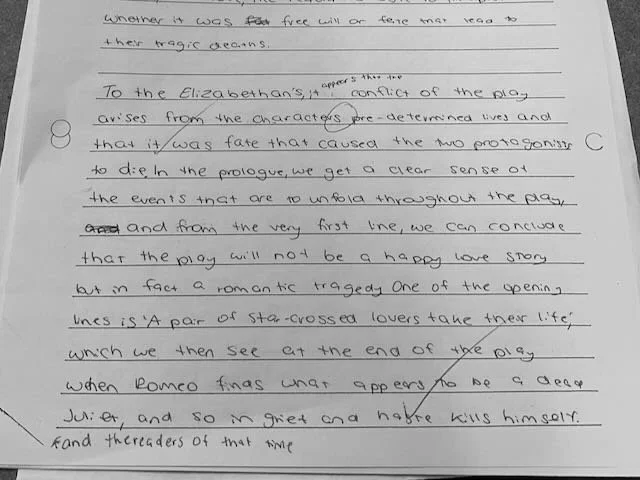 whether it was free will or fate that lead to
their tragic deaths.
appears that the
To the Elizabethan's, it conflict of the play
arises from the characters pre-determined lives and
that it was fate that caused the two protagonists
to die. In the prologue, we get a clear sense of
the events that are to unfold throughout the play,
and and from the very first line, we can conclude
that the play will not be a happy love story
but in fact a romantic tragedy. One of the opening
lines is 'A pair of star-crossed lovers take their life',
which we then see at the end of the play
when Romeo finds what appears to be a dead
Juliet, and so in grief and haste kills himself.
*and the readers of that time
8
C